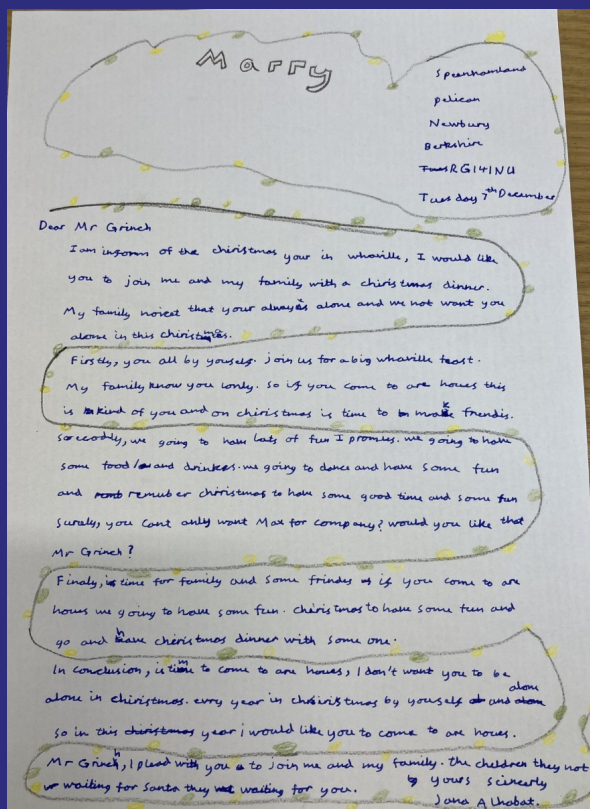 Marry
Speenhamland
pelican
Newbury
Berkshire
RG141NU
Tuesday 7th December
Dear Mr Grinch
I am inform of the chiristmas your in whoville, I would like
you to join me and my family with a chiristmas dinner.
My family noicet that your always alone and we not want you
alone in this chiristmas.
Firstly, you all by youself. join us for a big whoville feast.
My family know you lonly. so if you come to are houes this
is kind of you and on chiristmas is time to make frendis.
secodly, we going to have lots of fun I promies. we going to have
some food and drinkes. we going to dance and have some fun
and remuber chiristmas to have some good time and some fun
Surely, you cant only want Max for company? would you like that
Mr Grinch?
Finaly, is time for family and some frindes if you come to are
houes we going to have some fun. chiristmas to have some fun and
go and have chiristmas dinner with some one.
In conclusion, is time to come to are houes, I don't want you to be
alone in chiristmas. evry year in chiristmas by youself and alone
so in this year i would like you to come to are houes.
Mr Grinch, I plead with you to join me and my family. the children they not
waiting for Santa they waiting for you.
yours scinerly
Jana Alhobat.